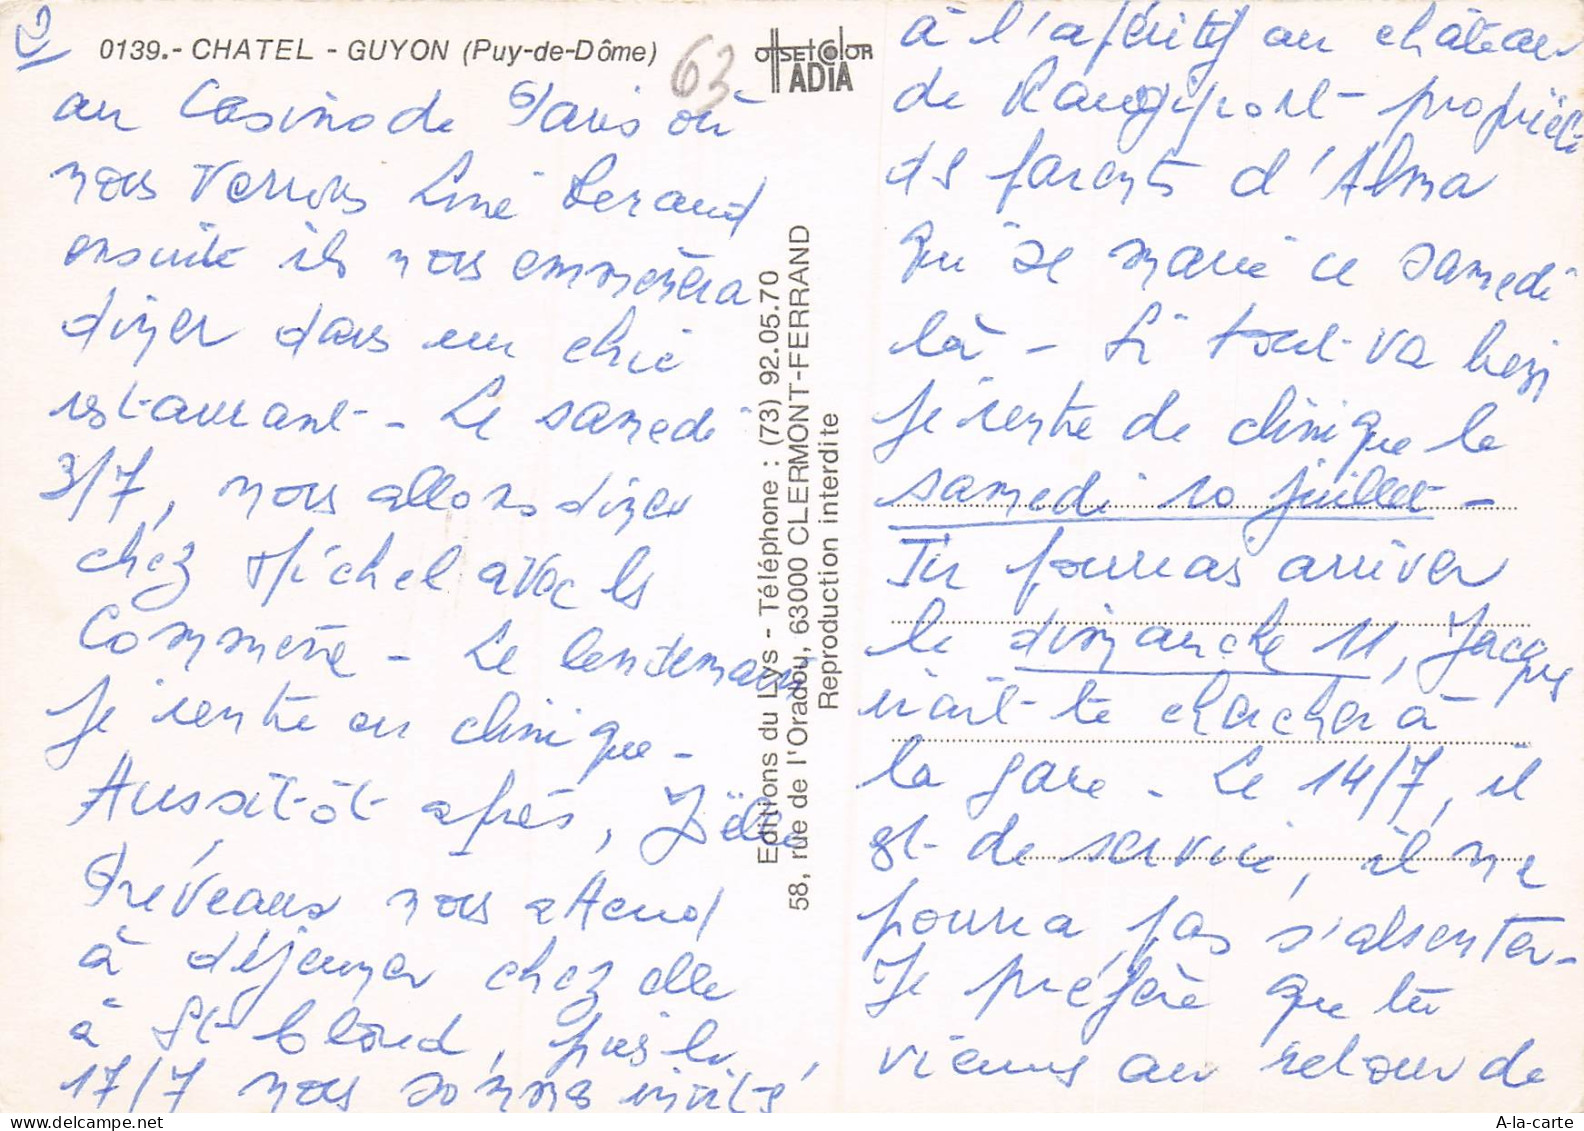 2
0139.- CHATEL - GUYON (Puy-de-Dôme)
63
OffsetColor
ADIA
au Casino de Paris où
nous verrons Line Renaud
ensuite ils nous emmènera
dîner dans un chic
restaurant - Le samedi
3/7, nous allons dîner
chez Michel avec les
Commère - Le lendemain
je rentre en clinique -
Aussitôt après, Joëlle
Préveaux nous attend
à déjeuner chez elle
à St-Cloud, puis le
17/7 nous sommes invités
Editions du Lys - Téléphone : (73) 92.05.70
58, rue de l'Oradou, 63000 CLERMONT-FERRAND
Reproduction interdite
à l'apéritif au château
de Rangiport - propriété
des parents d'Alma
qui se marie ce samedi
là - Si tout va bien
je rentre de clinique le
samedi 10 juillet -
Tu pourras arriver
le dimanche 11, Jacques
irait te chercher à
la gare - Le 14/7, il
est de service, il ne
pourra pas s'absenter -
Je préfère que tu
viennes au retour de
A-la-carte